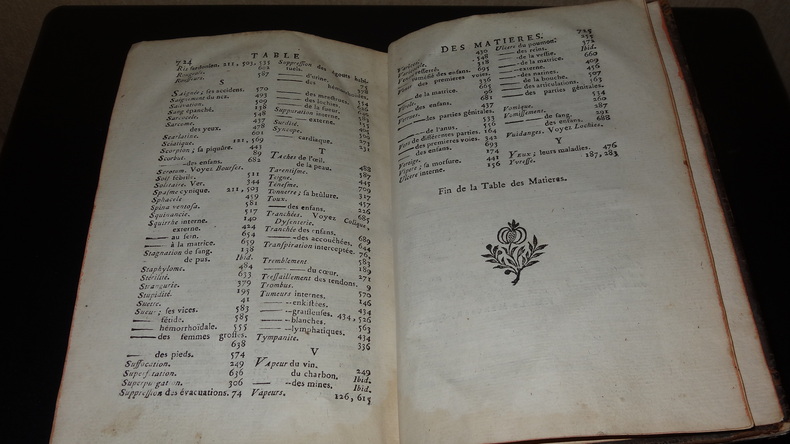 724 TABLE
Ris sardonien, 211, 503, 535
Rougeole.
Rousseurs. 587
S
Saignée; ses accidens. 570
Saignement du nez. 403
Salivation. 509
Sang épanché. 138
Sarcocele. 548
Sarcome. 437
des yeux. 478
Scarlatine. 601
Sciatique. 121, 569
Scorpion; sa piquûre. 441
Scorbut. 89
—des enfans. 682
Scrotum. Voyez Bourses.
Soif fébrile. 511
Solitaire. Ver. 344
Spasme cynique. 211, 503
Sphacele. 459
Spina ventosa. 581
Squinancie. 517
Squirrhe interne. 140
externe. 424
— au sein. 654
— à la matrice. 659
Stagnation de sang. 138
de pus. Ibid.
Staphylome. 484
Stérilité. 633
Strangurie. 379
Stupidité. 195
Suette. 41
Sueur; ses vices. 583
— fétide. 585
— hémorrhoïdale. 555
—des femmes grosses. 638
— des pieds. 574
Suffocation. 249
Superfétation. 636
Superpurgation. 306
Suppression des évacuations. 74
Suppression des égouts habituels.
— d'urine.
— des hémorrhoïdes.
— des menstrues.
— des lochies.
— de la sueur.
Suppuration interne.
— externe.
Surdité.
Syncope.
cardiaque. 271
T
Taches de l'œil. 482
de la peau. 587
Tarentisme.
Teigne. 445
Tenesme. 709
Tonnerre; sa brûlure. 317
Toux. 437
—des enfans. 226
Tranchées. Voyez Colique, 685
Dysenterie.
Tranchée des enfans. 689
—des accouchées. 644
Transpiration interceptée. 76,
583
Tremblement 189
— du cœur. 271
Tressaillement des tendons. 9
Trombus.
Tumeurs internes. 570
— enkistées. 146
— graisseuses. 434, 526
— blanches. 563
— lymphatiques. 434
Tympanite. 336
V
Vapeur du vin. 249
du charbon. Ibid.
— des mines. Ibid.
Vapeurs. 126, 615
DES MATIERES. 725
Varicelle. 436
Varicocele. 548
des enfans. 695
des premieres voies. 336
de la matrice. 665
98
des enfans. 681
437
—des parties génitales. 533
— de l'anus. 556
de différentes parties. 164
—des premieres voies. 342
des enfans. 693
Vertige. 174
Vipere; sa morsure. 441
Ulcere interne. 156
Ulcere du poumon. 255
des reins. 372
— de la vessie. Ibid.
— de la matrice. 660
—externe. 409
—des narines. 456
de la bouche. 507
des articulations. 563
des parties génitales. 534
Vomique. 260
Vomissement. 287
— de sang. 201
des enfans. 688
Vuidanges. Voyez Lochies.
Y
Yeux; leurs maladies. 476
Yvresse. 187, 283
Fin de la Table des Matieres.